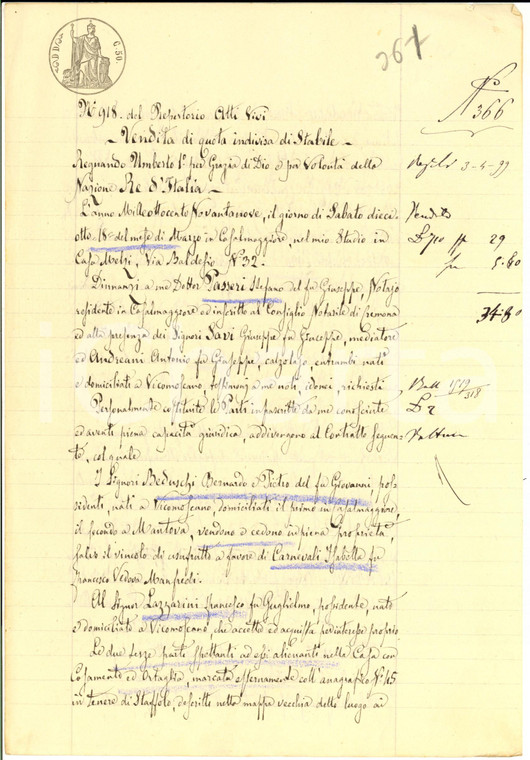 367
N° 366
N° 918. del Repertorio Atti Vivi
- Vendita di quota indivisa di Stabile -
Regnando Umberto I° per Grazia di Dio e per Volontà della
Nazione Re d'Italia -
L'anno Milleottocento Novantanove, il giorno di Sabato dieci-
otto 18 del mese di Marzo in Casalmaggiore, nel mio Studio in
Casa Molossi, Via Baldesio N° 32.
Dinnanzi a me Dottor Passeri Stefano del fu Giuseppe, Notajo
residente in Casalmaggiore ed inscritto al Consiglio Notarile di Cremona
ed alla presenza dei Signori Savi Giuseppe fu Giuseppe, mediatore
ed Andreani Antonio fu Giuseppe, calzolajo, entrambi nati
e domiciliati a Vicomoscano, testimonj a me noti, idonei, richiesti
Personalmente costituite le Parti infrascritte da me conosciute
ed aventi piena capacità giuridica, addivengono al Contratto seguen-
te, col quale
I Signori Beduschi Bernardo e Pietro del fu Giovanni, pos-
sidenti, nati a Vicomoscano, domiciliati il primo in Casalmaggiore
il secondo a Mantova, vendono e cedono in piena proprietà,
salvo il vincolo di usufrutto a favore di Carnevali Isabella fu
Francesco Vedova Manfredi.
Al Signor Lazzarini Francesco fu Guglielmo, possidente, nato
e domiciliato a Vicomoscano, che accetta ed acquista per interesse proprio
Le due terze parti spettanti ad essi alienanti nella Casa con
Casamento ed Ortaglia, marcata esternamente coll'anagrafico N° 45
in tenere di Staffolo, descritte nella mappa vecchia dello luogo ai
3-4-99
Vendita
29
5.80
34.80